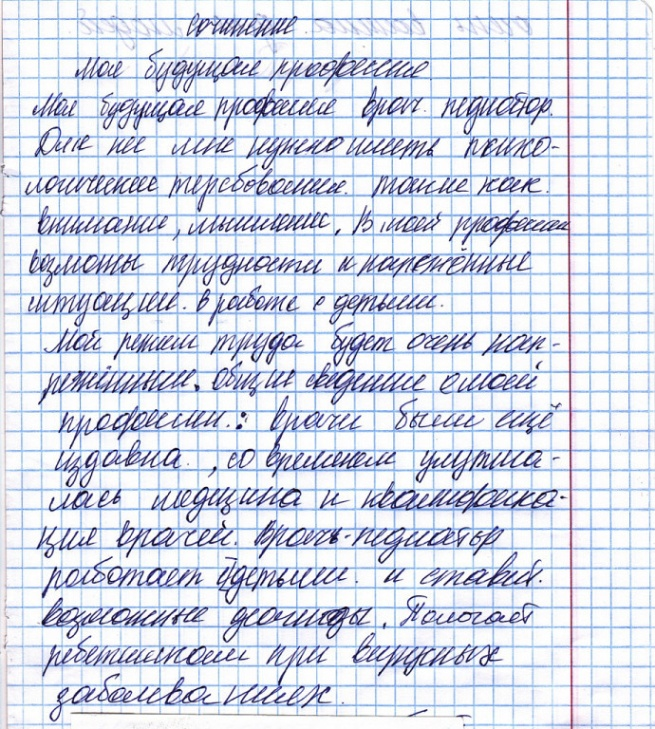 сочинение.
Моя будущая профессия
Моя будущая професия врач. педиатор.
Для нее мне нужно иметь психо-
логические терсбования. такие как.
внимание, мышление, В моей професии
возможны трудности и напряжённые
ситуации. в работе с детьми.
Мой режим труда будет очень нап-
ряжённым. общие сведение о моей
професии.: врачи были ещё
издавна., со временем улутша-
лась медицина и квалифика-
ция врачей. Врачь-педиатор
работает с детьми. и ставит.
возможные деагнозы. Помогает
ребетишкам при вирусных
заболеваниях.